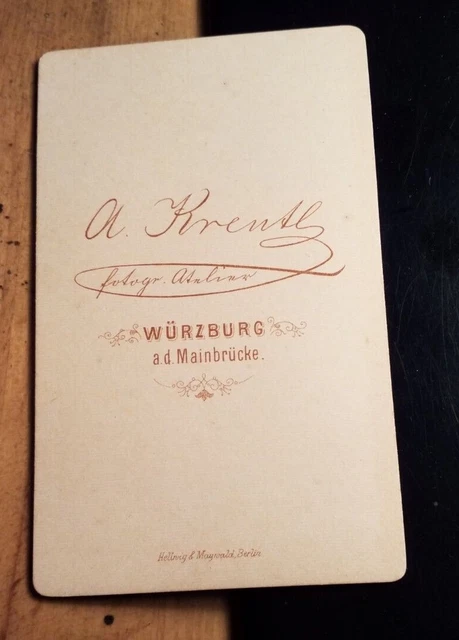 A. Krentl
fotogr. Atelier
WÜRZBURG
a.d. Mainbrücke.
Hellwig & Maywald, Berlin